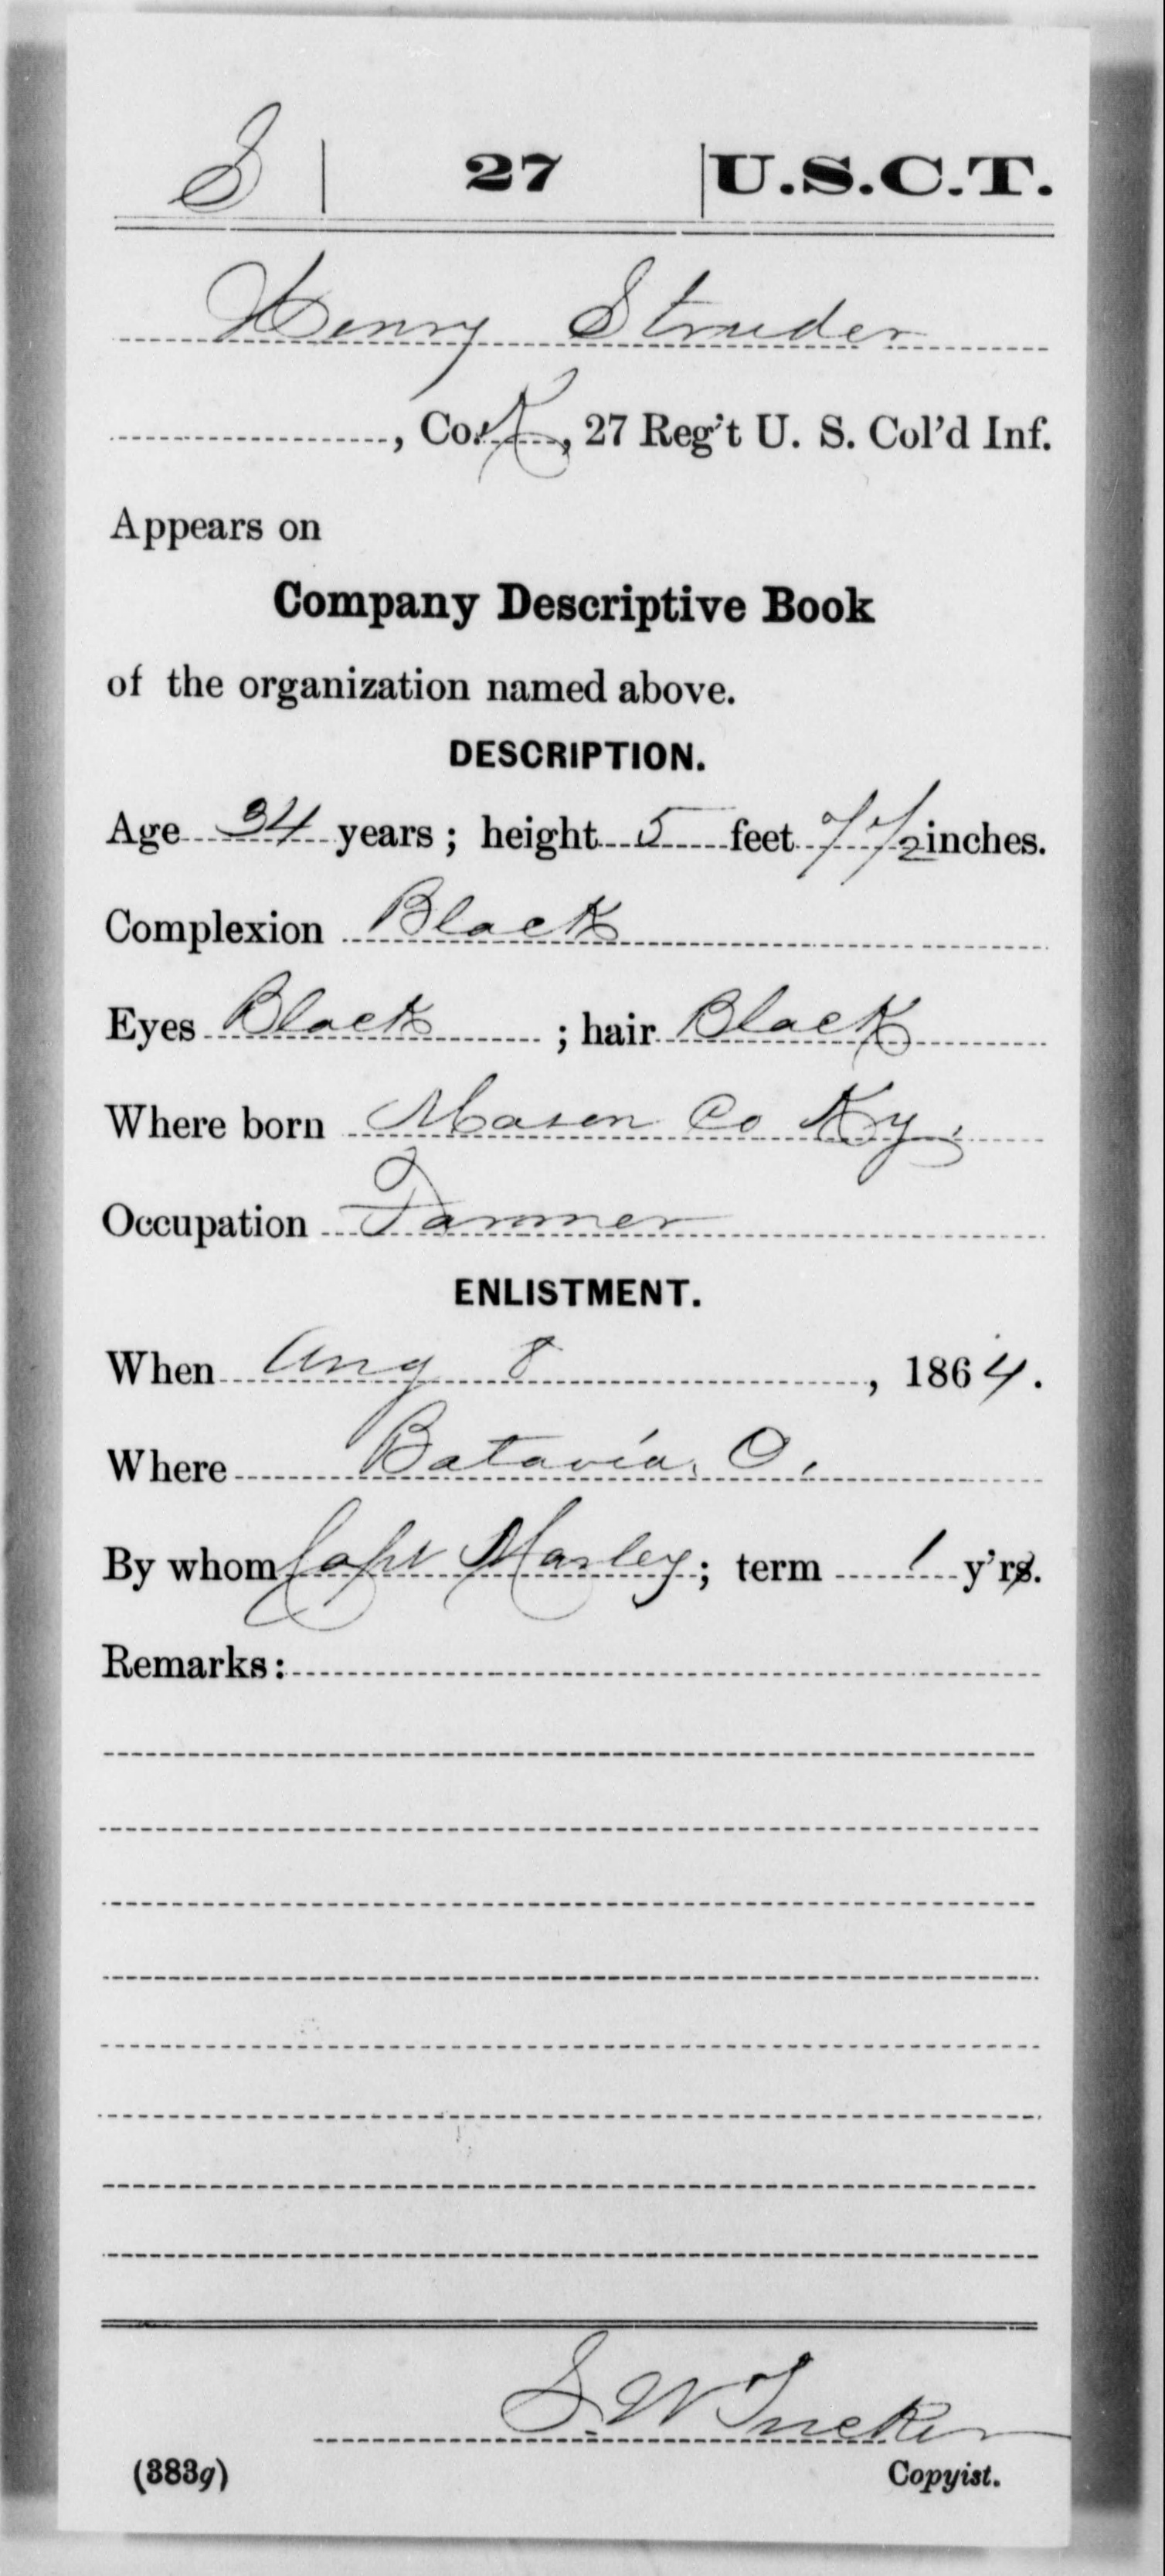 S | 27 | U.S.C.T.
Henry Struder
, Co. K, 27 Reg't U. S. Col'd Inf.
Appears on
Company Descriptive Book
of the organization named above.
DESCRIPTION.
Age 34 years; height 5 feet 7 1/2 inches.
Complexion Black
Eyes Black ; hair Black
Where born Mason Co Ky.
Occupation Farmer
ENLISTMENT.
When Aug 8, 1864.
Where Batavia, O.
By whom Capt Marley; term 1 y'rs.
Remarks:
S. W. Tucker
(383g) Copyist.